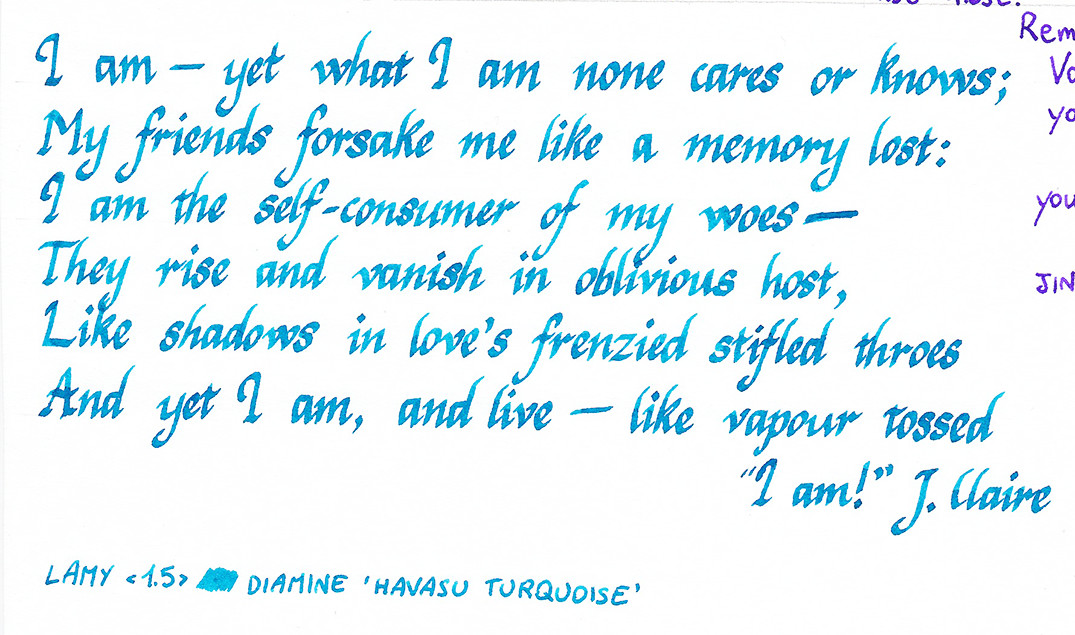 Rem
I am — yet what I am none cares or knows;
Vo
My friends forsake me like a memory lost:
yo
I am the self-consumer of my woes —
you
They rise and vanish in oblivious host,
JIN
Like shadows in love's frenzied stifled throes
And yet I am, and live — like vapour tossed
"I am!" J. Claire
LAMY <1.5> DIAMINE 'HAVASU TURQUOISE'